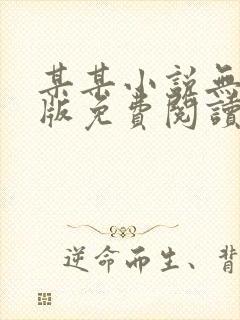 某某小说無
版免費閱讀
逆命而生、背